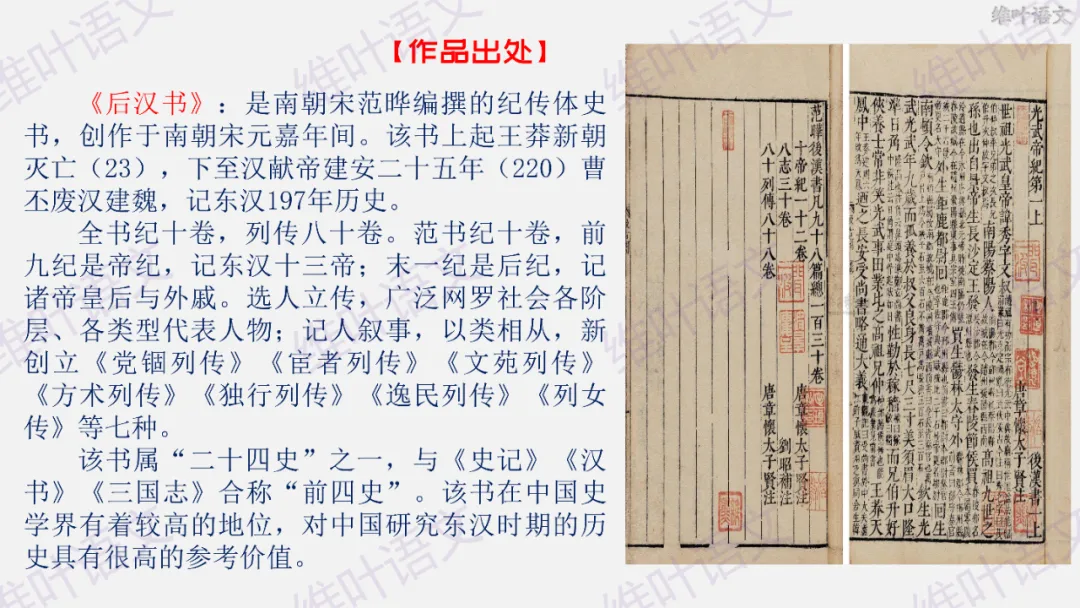 维叶语文
【作品出处】
《后汉书》：是南朝宋范晔编撰的纪传体史
书，创作于南朝宋元嘉年间。该书上起王莽新朝
灭亡（23），下至汉献帝建安二十五年（220）曹
丕废汉建魏，记东汉197年历史。
全书纪十卷，列传八十卷。范书纪十卷，前
九纪是帝纪，记东汉十三帝；末一纪是后纪，记
诸帝皇后与外戚。选人立传，广泛网罗社会各阶
层、各类型代表人物；记人叙事，以类相从，新
创立《党锢列传》《宦者列传》《文苑列传》
《方术列传》《独行列传》《逸民列传》《列女
传》等七种。
该书属“二十四史”之一，与《史记》《汉
书》《三国志》合称“前四史”。该书在中国史
学界有着较高的地位，对中国研究东汉时期的历
史具有很高的参考价值。
范曄後漢書凡九十八篇總一百三十卷
十帝紀一十二卷 唐章懷太子賢注
八志三十卷 劉昭補注
八十列傳八十八卷 唐章懷太子賢注
光武帝紀第一上 後漢書一上
唐章懷太子賢注
世祖光武皇帝諱秀字文叔
南陽蔡陽人
高祖九世之
孫也出自景帝生長沙定王發
發生舂陵節侯買
買生鬱林太守外
外生鉅鹿都尉回
回生
南頓令欽
欽生光
武光武年九歲而孤養於叔父良身長七尺三寸美須眉大口隆
準日角
性勤於稼穡
而兄伯升好
俠養士常非笑光武事田業比之高祖兄仲
王莽天
鳳中
迺之長安受尚書略通大義